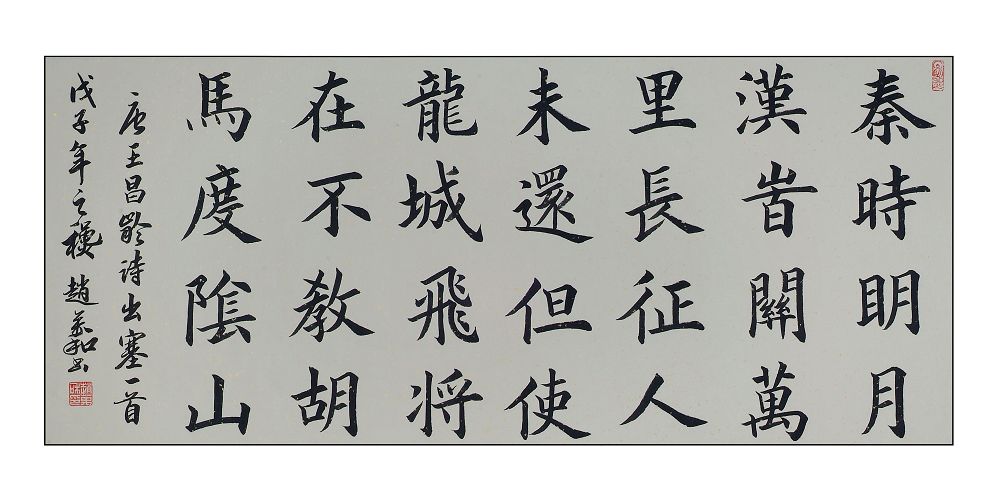 秦時明月
漢旹關萬
里長征人
未還但使
龍城飛将
在不教胡
馬度隂山
唐王昌齡诗出塞一首
戊子年之穐趙和书